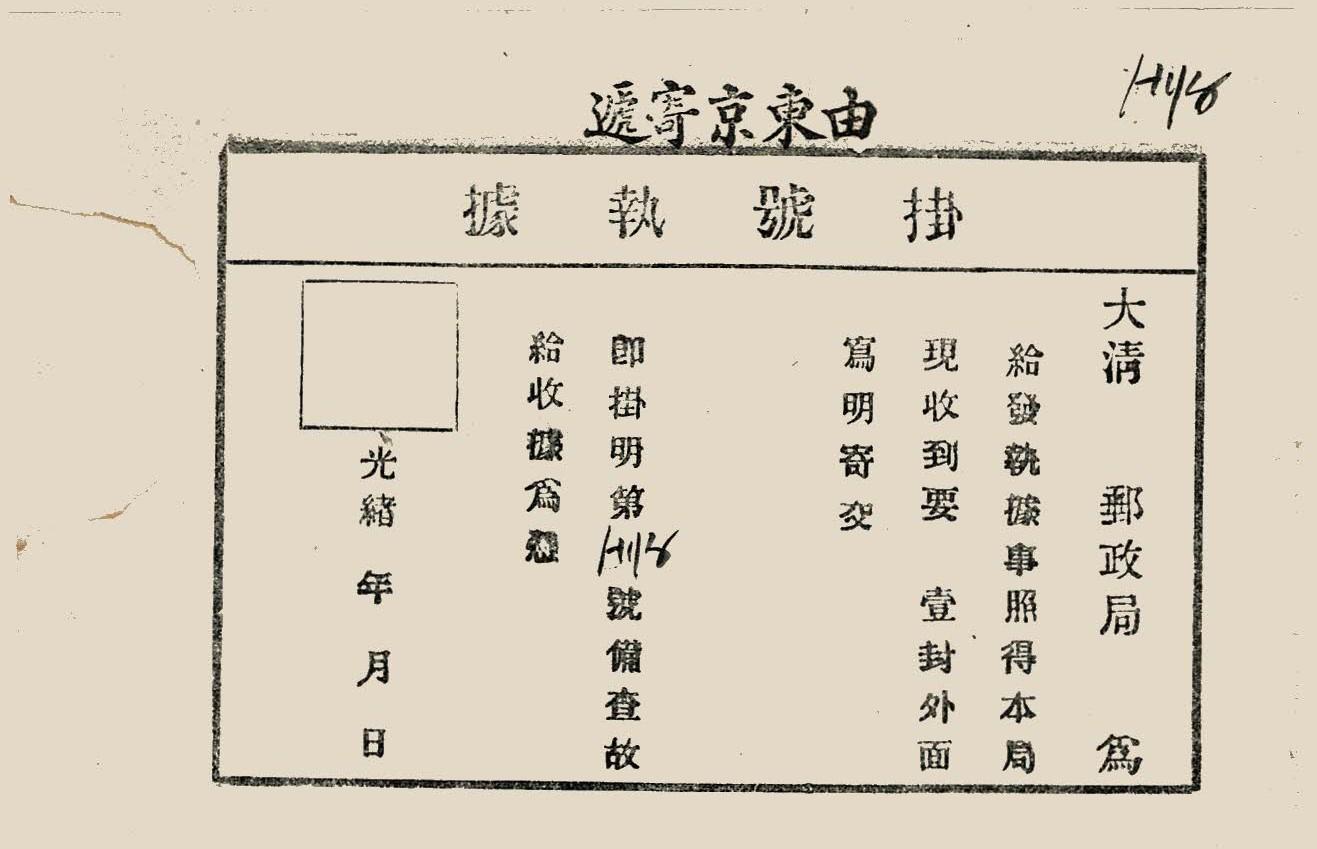 由東京寄遞
掛號執據
大清 郵政局 爲
給發執據事照得本局
現收到要 壹封外面
寫明寄交
即掛明第 號備查故
給收據爲
光緒 年 月 日